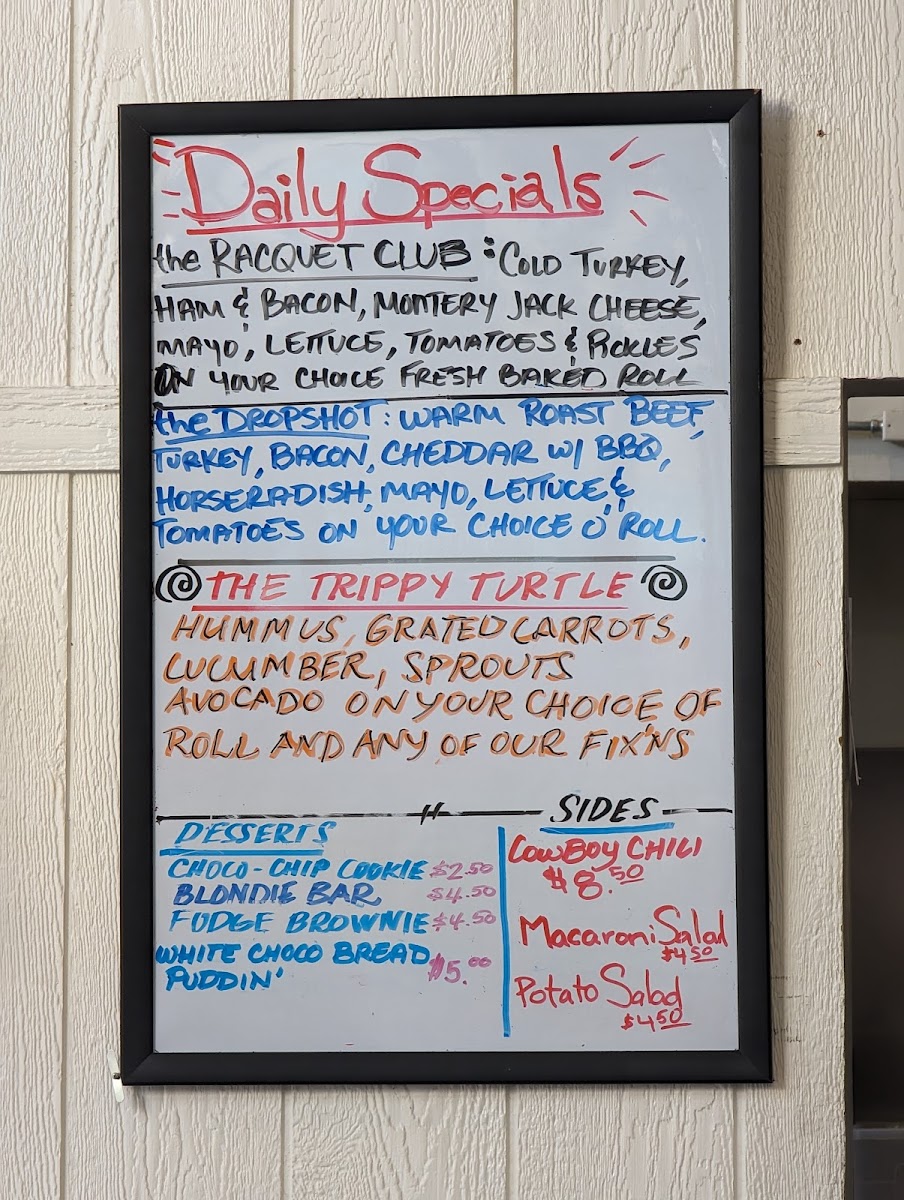 Daily Specials
the RACQUET CLUB : COLD TURKEY,
HAM & BACON, MONTERY JACK CHEESE,
MAYO, LETTUCE, TOMATOES & PICKLES
ON YOUR CHOICE FRESH BAKED ROLL
the DROPSHOT : WARM ROAST BEEF,
TURKEY, BACON, CHEDDAR W/ BBQ,
HORSERADISH, MAYO, LETTUCE &
TOMATOES ON YOUR CHOICE O' ROLL.
THE TRIPPY TURTLE
HUMMUS, GRATED CARROTS,
CUCUMBER, SPROUTS
AVOCADO ON YOUR CHOICE OF
ROLL AND ANY OF OUR FIX'NS
DESSERTS
CHOCO-CHIP COOKIE $2.50
BLONDIE BAR $4.50
FUDGE BROWNIE $4.50
WHITE CHOCO BREAD
PUDDIN' $5.00
SIDES
COWBOY CHILI
$8.50
Macaroni Salad
$4.50
Potato Salad
$4.50